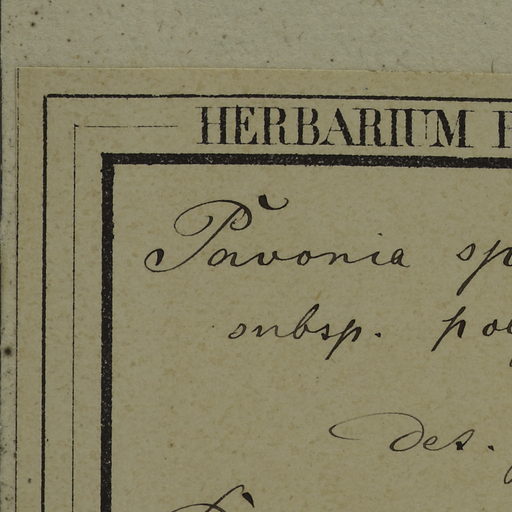 HERBARIUM
Pavonia sp
subsp. pol
det.